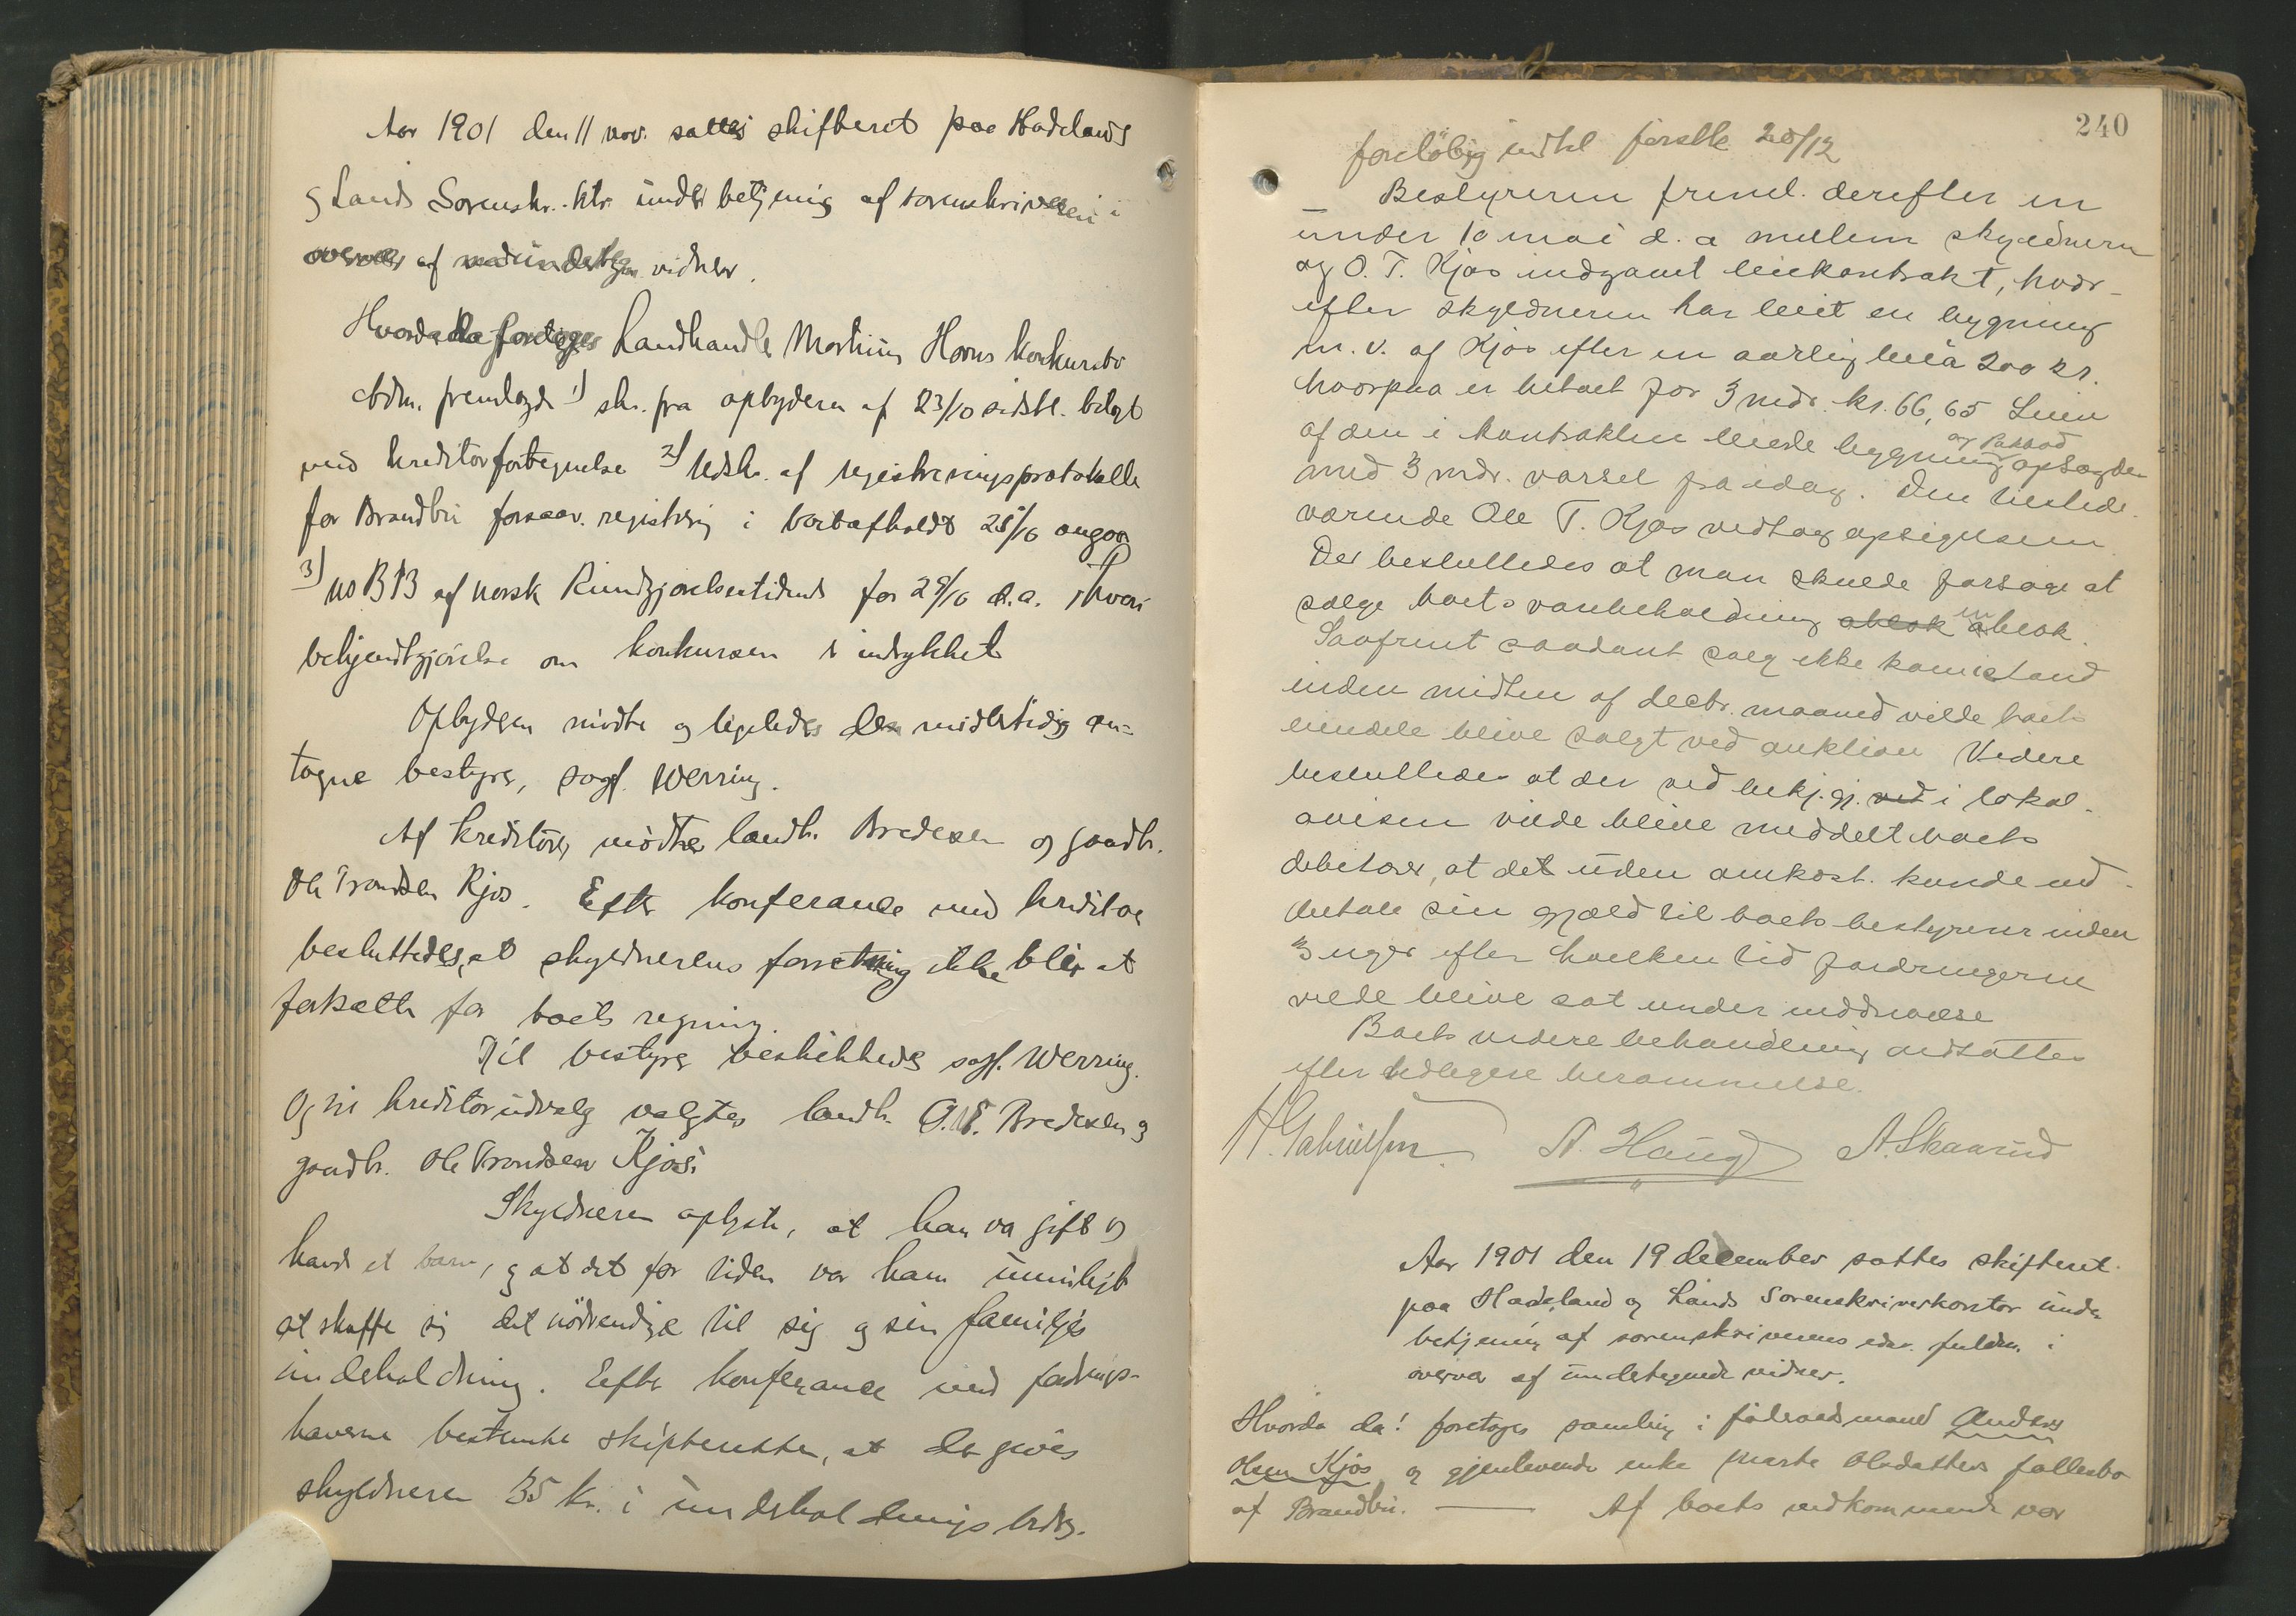 Aar 1901 den 11 nov. sattes skifteret paa Hadelands
og Lands Sorenskr.-ktr. under betjening af sorenskriveren i
overvær af medundertegn. vidner.
Hvorda da foretoges Landhandle Martinius Horns konkursbo
Adm. fremlagde 1) skr. fra opbyderen af 23/10 sidstl. bilagt
med kreditorfortegnelse 2) Udskr. af registreringsprotokolle
for Brandbu forsaav. registrering i boet afholdt 25/10 angaar
3) no 83 af norsk Kundgjørelsestidende for 29/10 d.a. hvori
bekjendtgjørelse om konkursen er indrykket
Opbyderen mødte og ligeledes den midlertidig an-
tagne bestyrer, sagf. Werring.
Af kreditorer mødte landh. Bredesen og gaardbr.
Ole Trondsen Kjos. Efter konferance med kreditor
besluttedes, at skyldnerens forretning ikke blir at
fortsætte for boets regning.
Til bestyrer beskikkedes sagf. Werring.
Og til kreditorudvalg valgtes landh. Bredesen og
gaardbr. Ole Trondsen Kjos.
Skyldneren oplyste, at han var gift og
havde et barn, og at det for tiden var ham umuligt
at skaffe sig det nødvendige til sig og sin familjes
underholdning. Efter konferance med fordrings-
haverne bestemte skifteretten, at der gives
skyldneren 35 kr. i underholdningsbidrag.
240
foreløbig indtil førstk. 20/12
Bestyreren freml. derefter en
under 10 mai d. a mellem skyldneren
og O. T. Kjos indgaaet leiekontrakt, hvor-
efter skyldneren har leiet en bygning
m. v. af Kjos efter en aarlig leie à 200 kr.
hvorpaa er betalt for 3 mdr. kr. 66,65 Leien
af den i kontrakten leiede bygning og Pakbod opsagdes
med 3 mdr. varsel fra idag. Den tilstede-
værende Ole T. Kjos vedtog opsigelsen
Der besluttedes at man skulde forsøge at
sælge boets varebeholdning ablok en ablok.
Saafremt saadant salg ikke kom istand
inden midten af decbr. maaned vilde boets
eiendele blive solgt ved auktion Videre
besluttedes at der ved bekj.gj. ved i lokal-
avisen vilde blive meddelt boets
debitorer, at det uden omkost. kunde ind-
betale sin gjæld til boets bestyrer inden
3 uger efter hvilken tid fordringerne
vilde blive sat under inddrivelse
Boets videre behandling udsattes
efter tidligere berammelse.
H. Gabrielsen. A. Haug A. Skaarud
Aar 1901 den 19 december sattes skifteret
paa Hadeland og Lands Sorenskriverkontor under
betjening af sorenskriverens edsv. fuldm. i
overvær af undertegnede vidner.
Hvorda da! foretoges samling i føderaadsmand Anders
Olsen Kjos og gjenlevende enke Marte Olsdatters fællesbo
af Brandbu. — Af boets vedkommende var